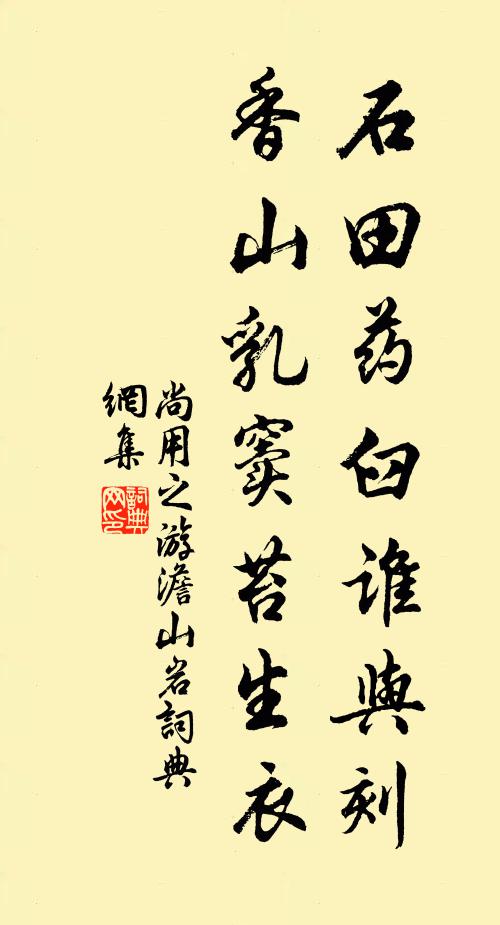 石田药臼谁與刻
香山乳窦苔生衣
尚用之游澹山岩詞典
網集
詞典
网印